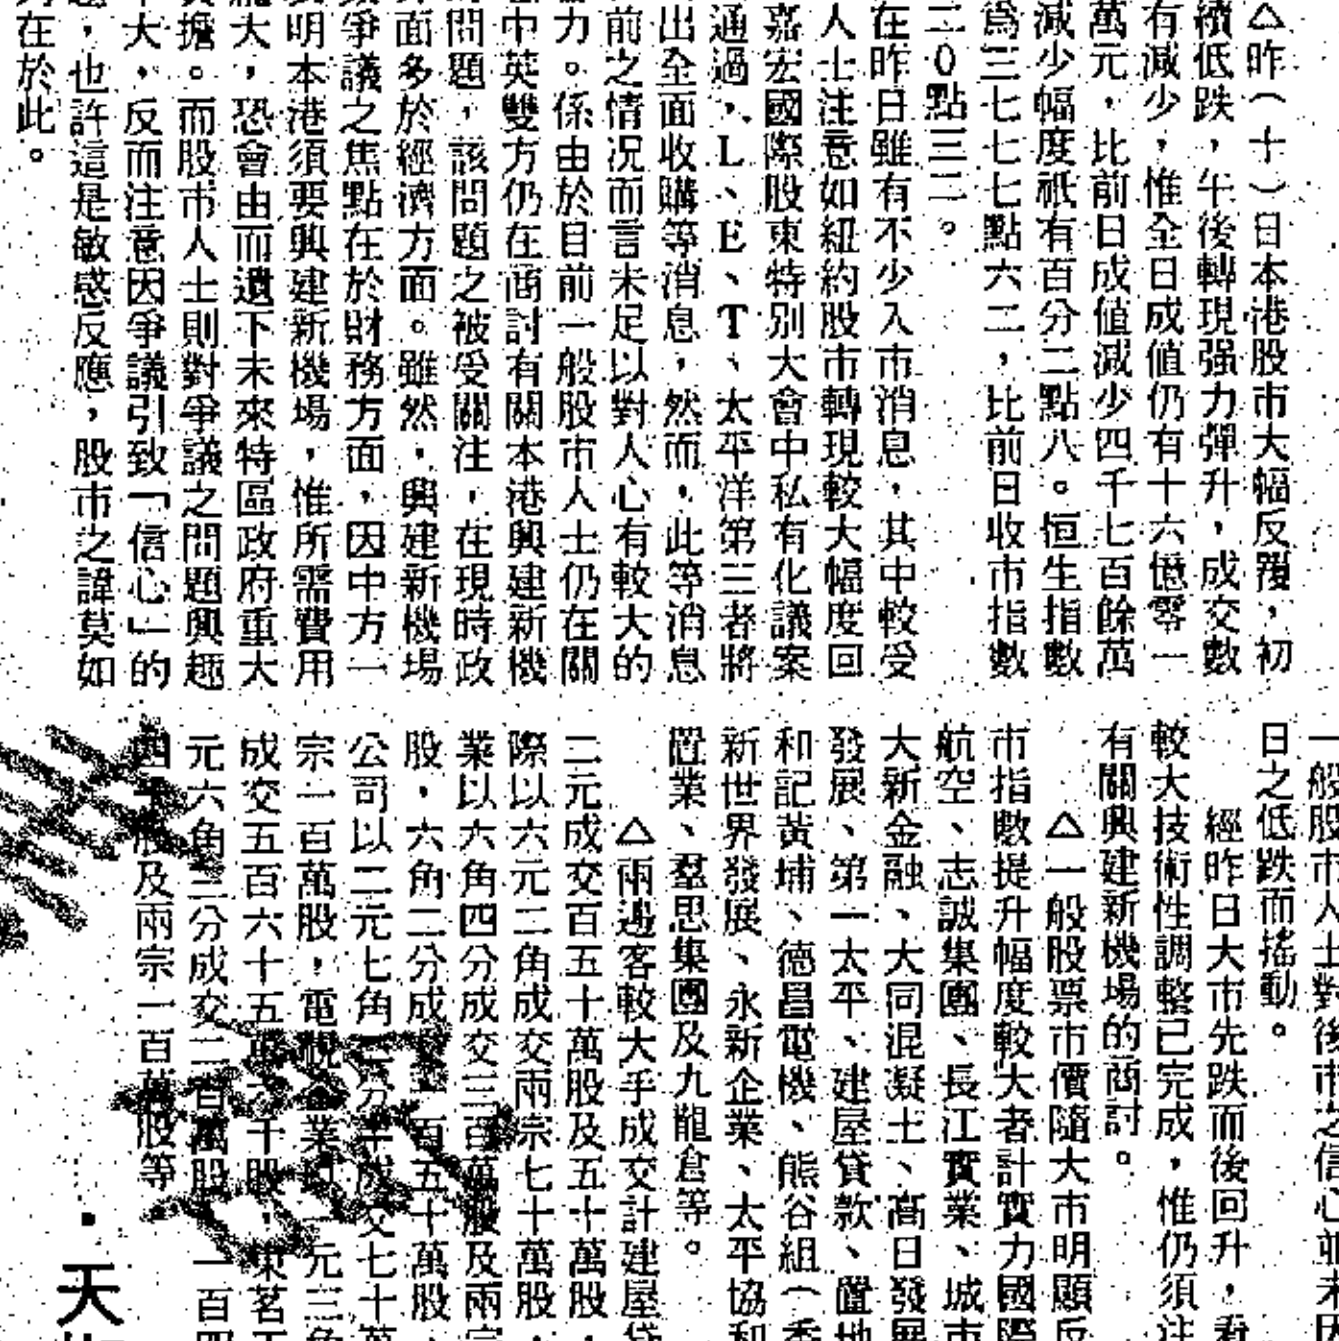 △昨︵十︶日本港股市大幅反覆，初
續低跌，午後轉現强力彈升，成交數
有減少，惟全日成值仍有十六億零一
萬元，比前日成值減少四千七百餘萬
減少幅度祇有百分二點八。恒生指數
爲三七七七點六二，比前日收市指數
二0點三二。
在昨日雖有不少入市消息，其中較受
人士注意如紐約股市轉現較大幅度回
嘉宏國際股東特別大會中私有化議案
通過，L、E、T、太平洋第三者將
出全面收購等消息，然而，此等消息
前之情况而言未足以對人心有較大的
力。係由於目前一般股市人士仍在關
中英雙方仍在商討有關本港興建新機
問題，該問題之被受關注，在現時政
面多於經濟方面。雖然，興建新機場
爭議之焦點在於財務方面，因中方一
明本港須要興建新機場，惟所需費用
大，恐會由而遺下未來特區政府重大
擔。而股市人士則對爭議之問題興趣
大，反而注意因爭議引致「信心」的
，也許這是敏感反應，股市之諱莫如
在於此。
一般股市人士對後市之信心並未因
日之低跌而搖動。
經昨日大市先跌而後回升，看
較大技術性調整已完成，惟仍須注
有關興建新機場的商討。
△一般股票市價隨大市明顯反
市指數提升幅度較大者計實力國際
航空、志誠集團、長江實業、城市
大新金融、大同混凝土、高日發展
發展、第一太平、建屋貸款、置地
和記黃埔、德昌電機、熊谷組︵香
新世界發展、永新企業、太平協和
置業、羣思集團及九龍倉等。
△兩邊客較大手成交計建屋貸
二元成交百五十萬股及五十萬股，
際以六元二角成交兩宗七十萬股，
業以六角四分成交三百萬股及兩宗
股，六角二分成 百五十萬股，
公司以二元七角 分 成交七十萬
宗一百萬股，電視企業 一元三角
成交五百六十五萬 千股，東茗天
元六角三分成交二百萬股 一百四
四 股及兩宗一百萬股等。
·天